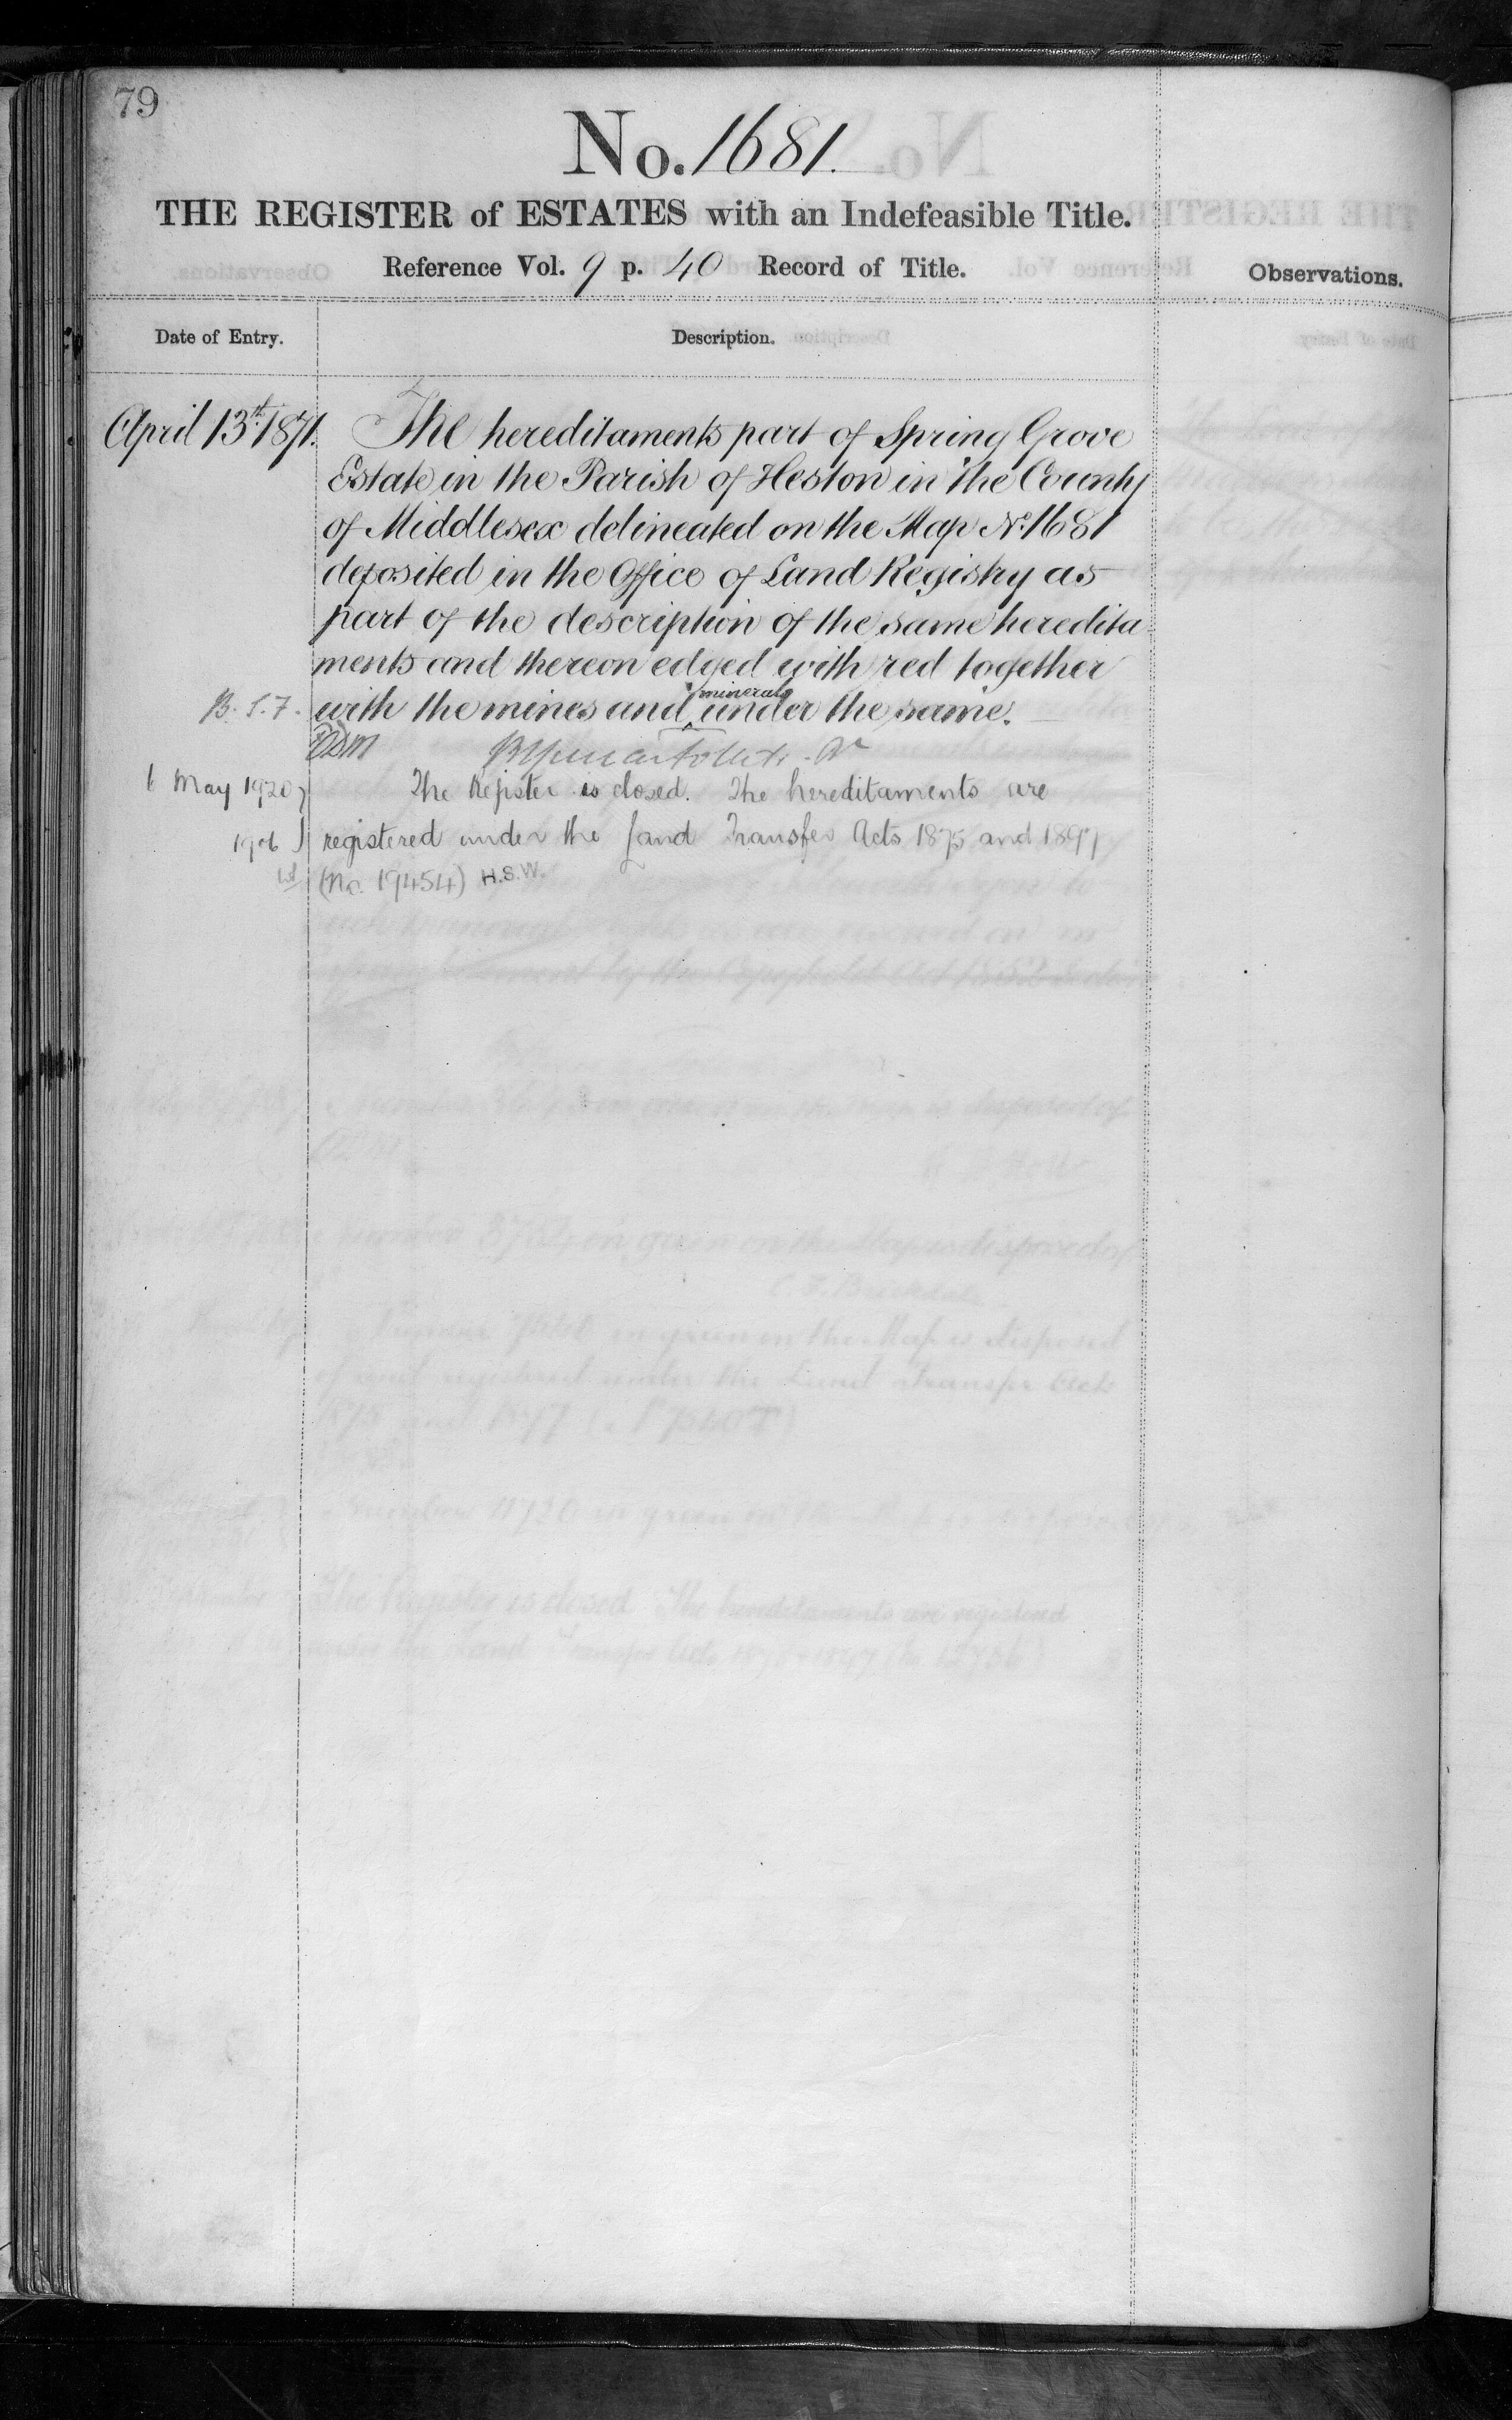 79
No. 1681.
THE REGISTER of ESTATES with an Indefeasible Title.
Reference Vol. 9 p. 40 Record of Title.
Observations.
Date of Entry.
Description.
April 13th. 1871.
The hereditaments part of Spring Grove
Estate in the Parish of Heston in the County
of Middlesex delineated on the Map No. 1681
deposited in the Office of Land Registry as
part of the description of the same heredita-
ments and thereon edged with red together
with the mines and minerals under the same.
May 1920
The Register is closed. The hereditaments are
registered under the Land Transfer Acts 1875 and 1897
(No. 19454) H.S.W.